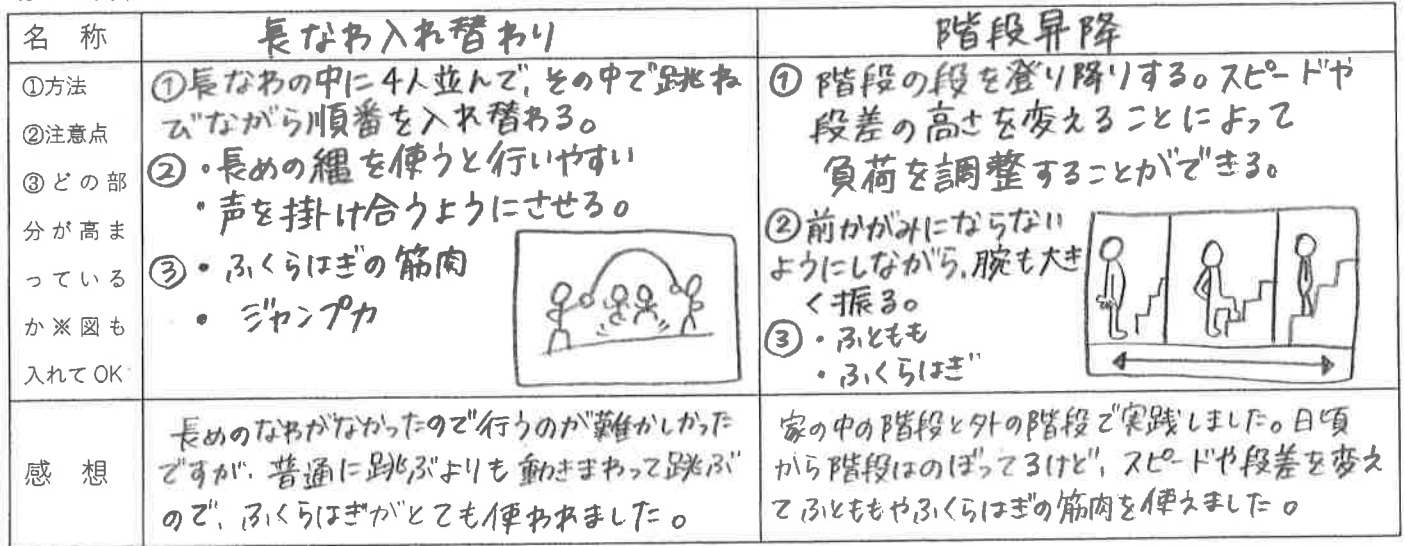 名 称
長なわ入れ替わり
階段昇降
①方法
②注意点
③どの部
分が高ま
っている
か※図も
入れてOK
①長なわの中に4人並んで、その中で跳ね
びながら順番を入れ替わる。
②・長めの縄を使うと行いやすい
・声を掛け合うようにさせる。
③・ふくらはぎの筋肉
・ジャンプ力
① 階段の段を登り降りする。スピードや
段差の高さを変えることによって
負荷を調整することができる。
②前かがみにならない
ようにしながら、腕も大き
く振る。
③・ふともも
・ふくらはぎ
感 想
長めのなわがなかったので行うのが難かしかった
ですが、普通に跳ぶよりも動きまわって跳ぶ
ので、ふくらはぎがとても使われました。
家の中の階段と外の階段で実践しました。日頃
から階段はのぼってるけど、スピードや段差を変え
てふとももやふくらはぎの筋肉を使えました。